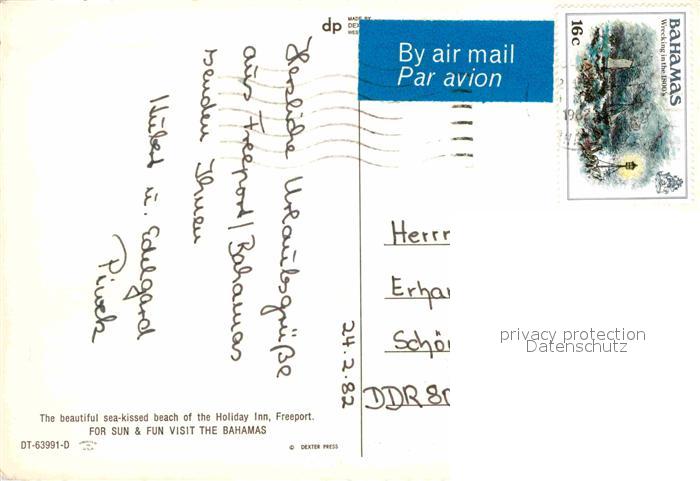 dp
MADE BY
DEX
WES
By air mail
Par avion
BAHAMAS
Wrecking in the 1800's
16c
Herzliche Urlaubsgrüße
aus Freeport/Bahamas
senden Ihnen
Hubert u. Edelgard
24.2.82
Herrn
Erha
Schö
DDR 80
privacy protection
Datenschutz
The beautiful sea-kissed beach of the Holiday Inn, Freeport.
FOR SUN & FUN VISIT THE BAHAMAS
DT-63991-D
© DEXTER PRESS